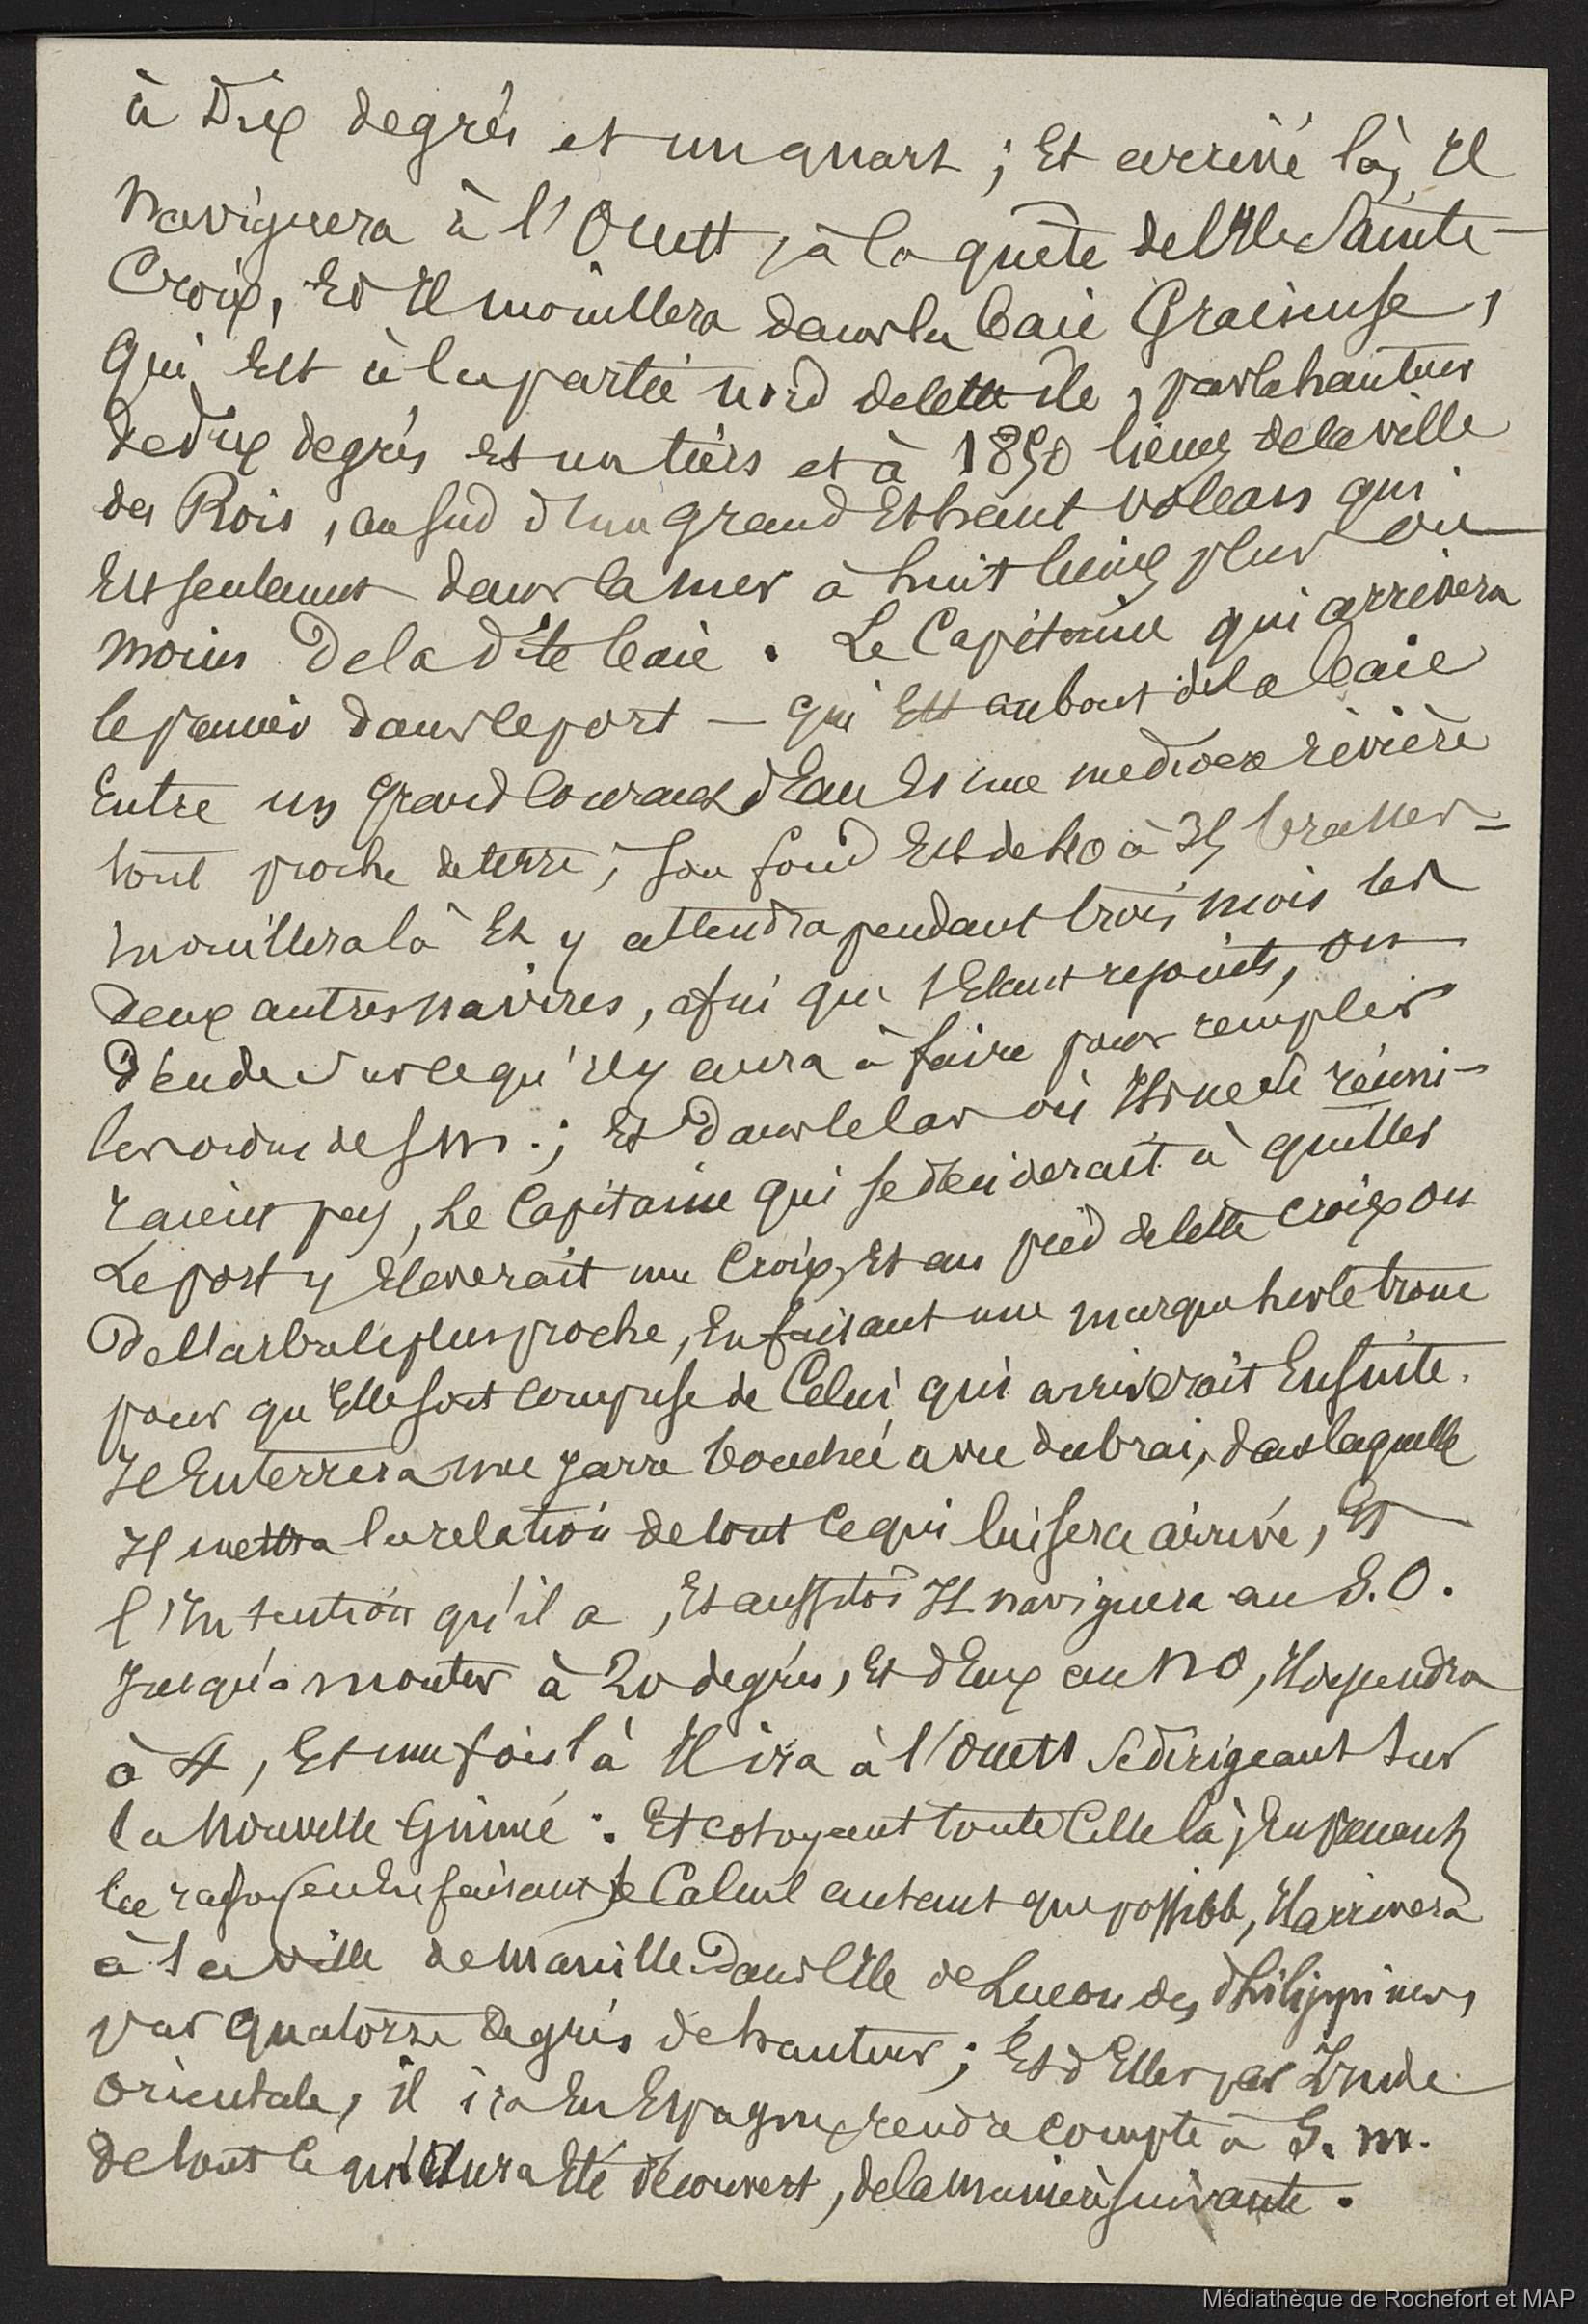 à Dix degrés et un quart ; Et arrivé là, Il
naviguera à l'Ouest, à la quête de l'Ile Sainte-
Croix, Et Il mouillera dans la baie Gracieuse,
Qui Est à la partie nord de cette île, par la hauteur
de dix degrés et un tiers et à 1850 lieues de la ville
des Rois, au sud d'un grand Et haut volcan qui
Est seulement dans la mer à huit lieues plus ou
moins De la dite baie. Le Capitaine qui arrivera
le premier dans le port — qui Est au bout de la baie
Entre un grand courant d'Eau Et une médiocre rivière
tout proche de terre, son fond Est de 40 à 35 brasses —
mouillera là Et y attendra pendant trois mois les
deux autres navires, afin que s'Etant rejoints, on
décide sur ce qu'il y aura à faire pour remplir
les ordres de S M. ; Et Dans le cas où Ils ne se réuni-
raient pas, Le Capitaine qui se déciderait à quitter
Le port y Elèverait une Croix, Et au pied de cette croix ou
De l'arbre le plus proche, En faisant une marque sur le tronc
pour qu'Elle soit comprise de Celui qui arriverait Ensuite.
Il Enterrera une jarre bouchée avec du brai, dans laquelle
Il mettra la relation de tout ce qui lui sera arrivé, Et
l'Intention qu'il a, Et aussitôt Il naviguera au S.O.
jusqu'à monter à 20 degrés, Et d'Eux au NO, Il
à 4, Et une fois là Il ira à l'Ouest Se dirigeant sur
la Nouvelle Guinée : Et cotoyant toute Celle là, En prenant
En faisant le Calcul autant que possible, Il arrivera
à la ville de Manille Dans l'Ile de Luçon des Philippines,
par quatorze degrés de hauteur ; Et d'Elles par L'Inde
Orientale, il ira En Espagne rendre compte à S. M.
de tout ce qui aura Eté découvert, de la manière suivante.
Médiathèque de Rochefort et MAP